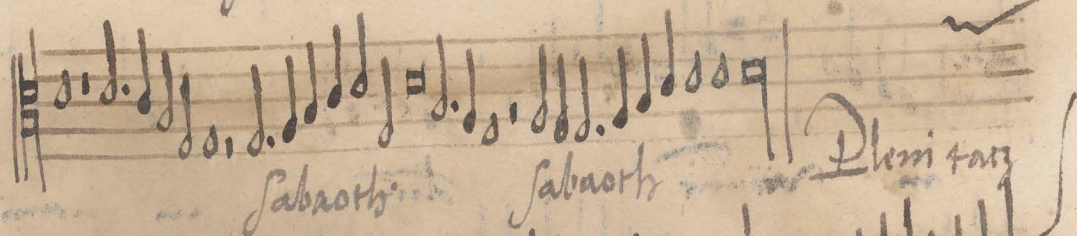 Sabaoth Sabaoth Pleni